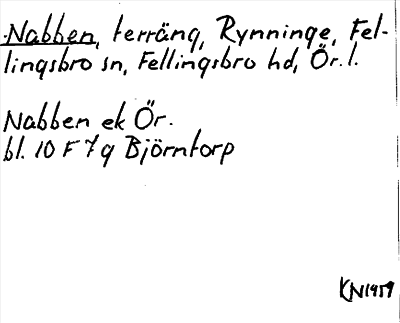 Nabben, terräng, Rynninge, Fel-
lingsbro sn, Fellingsbro hd, Ör. l.
Nabben ek Ör.
bl. 10 F 7 g Björntorp
KN 1959